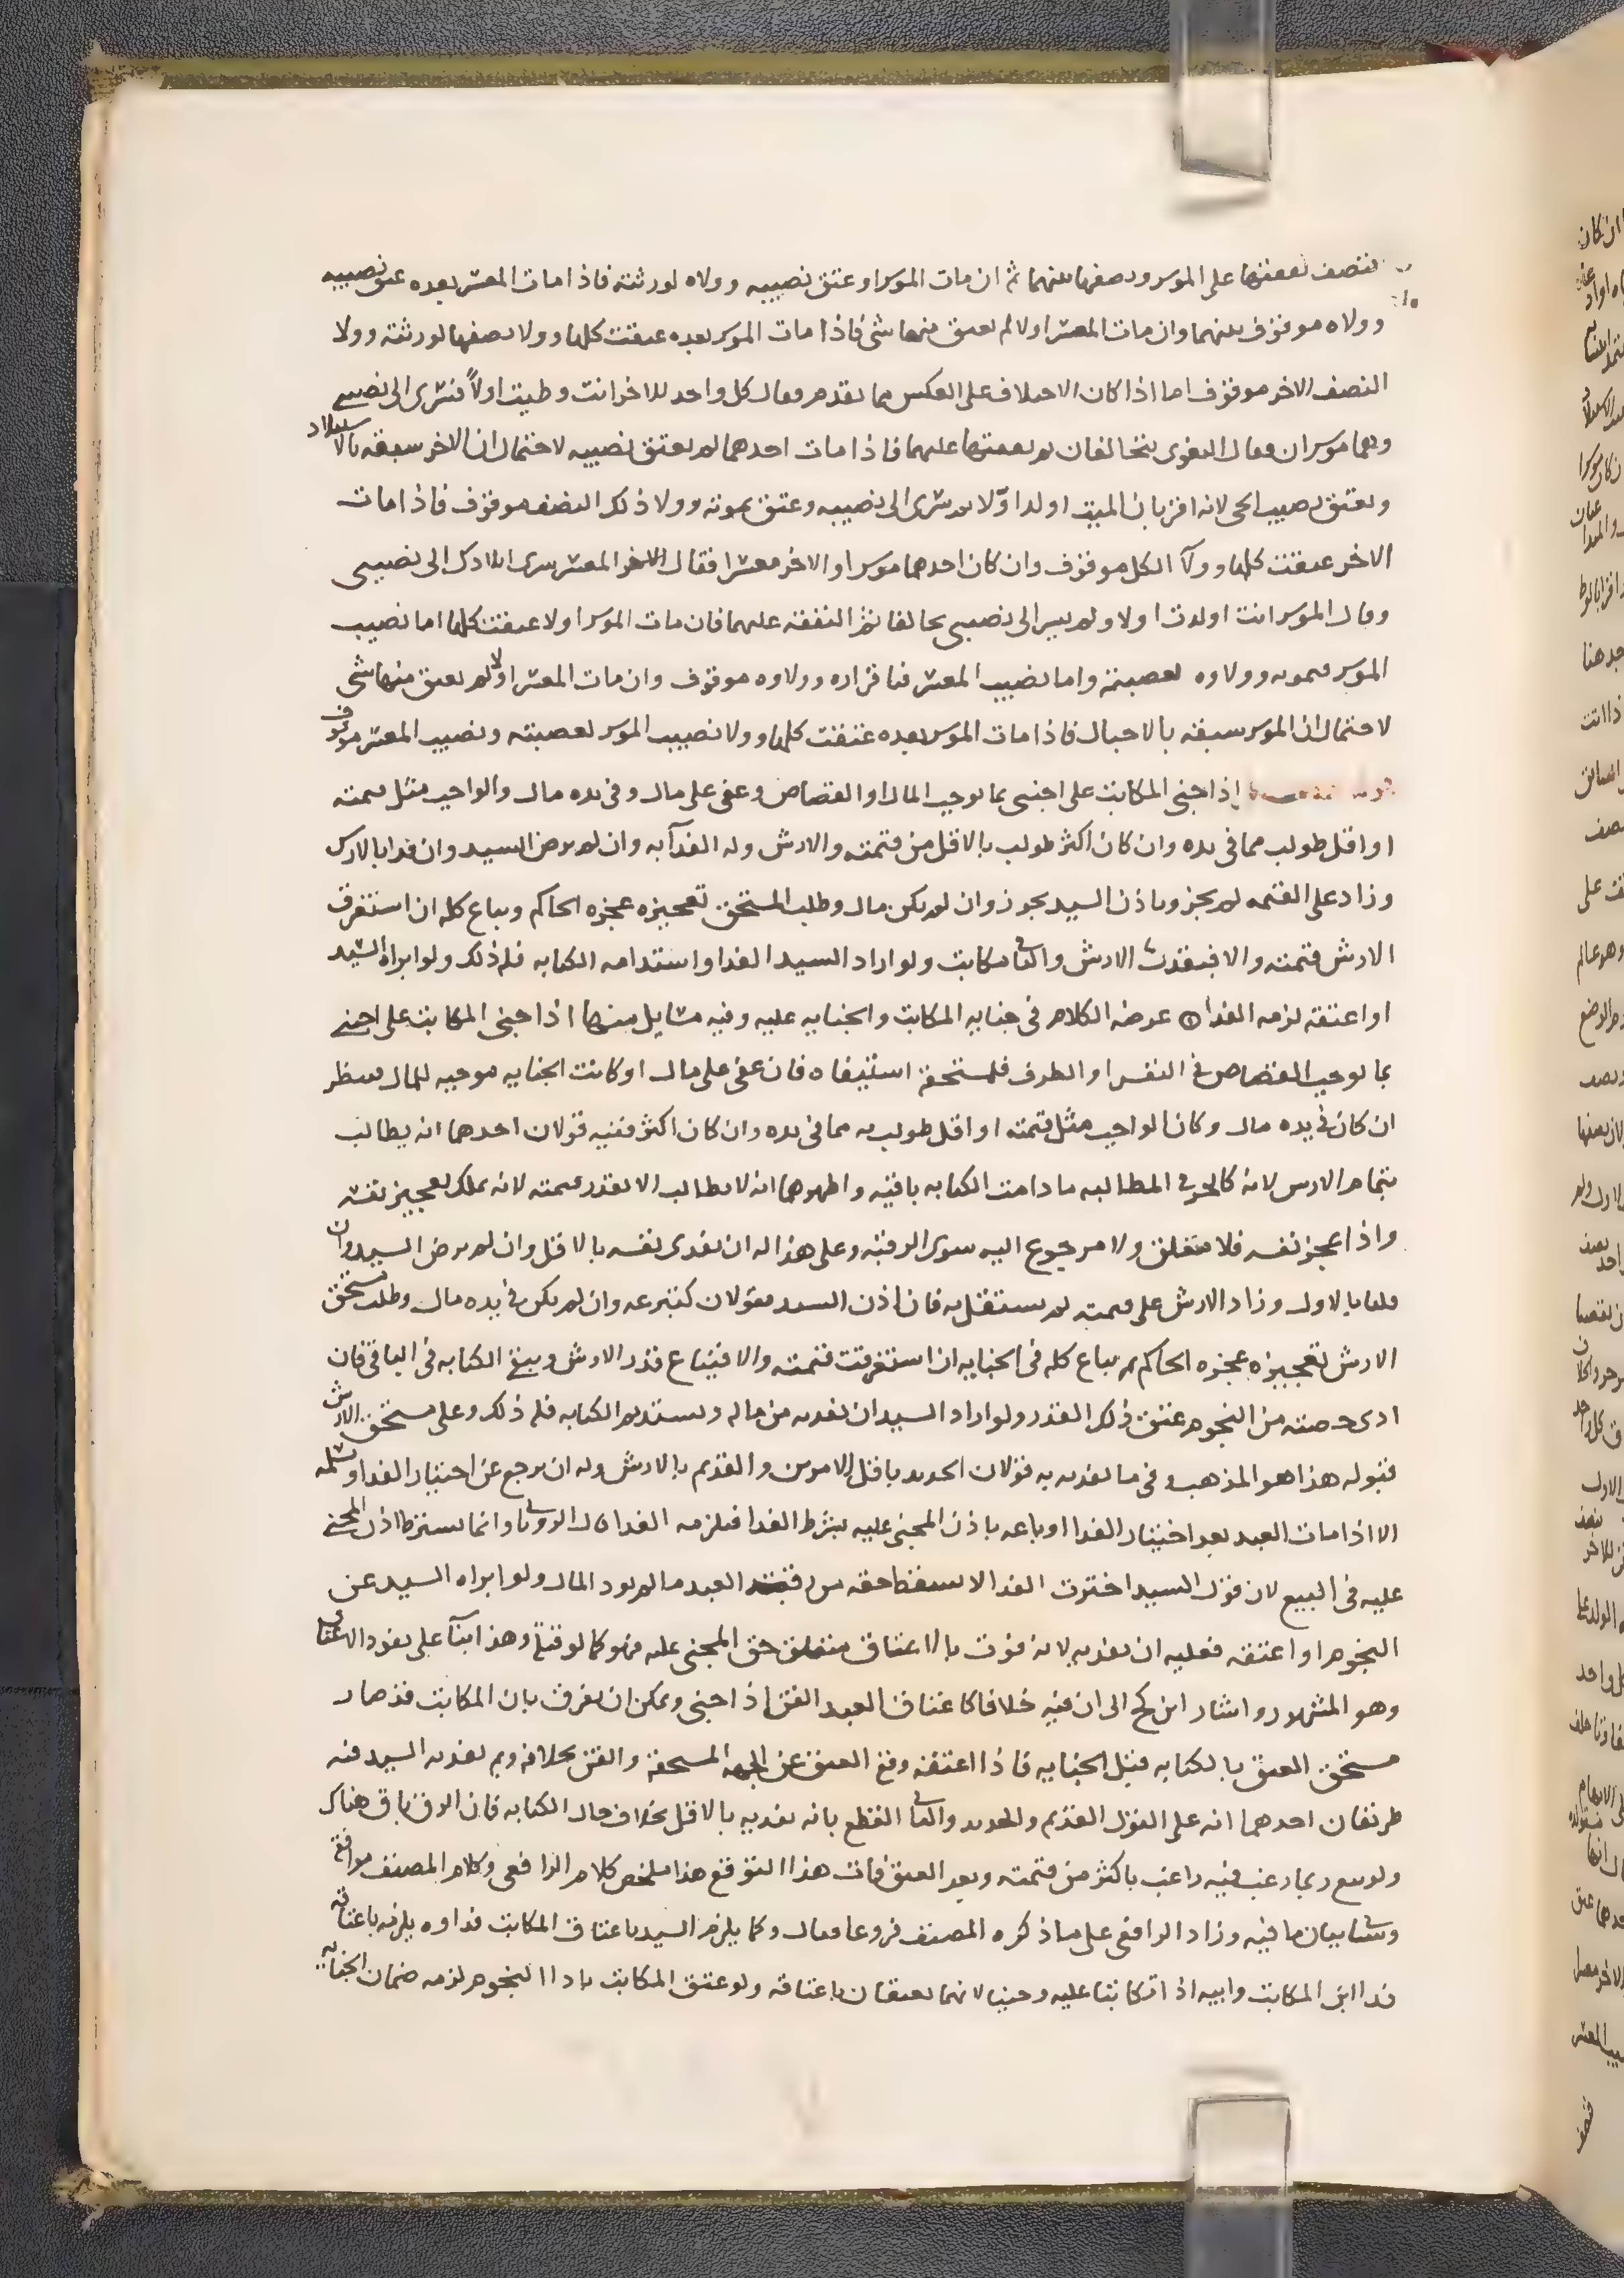 فنصف نفقتها على الموسر ونصفها بينهما ثم ان مات الموسر اولا عتق نصيبه وولاه لورثته فاذا مات المعسر بعده عتق نصيبه
وولاه موقوف بينهما وان مات المعسر اولا لم يعتق منها شئ فاذا مات الموسر بعده عتقت كلها وولا نصفها لورثته وولا
النصف الاخر موقوف اما اذا كان الاختلاف على العكس مما تقدم وقال كل واحد للاخر انت وطيت اولاً فسرى الى نصيبي
وهما موسران وقال البغوى يتحالفان ثم نفقتها عليهما فاذا مات احدهما لم يعتق نصيبه لاحتمال ان الاخر سبقه بالاستيلاد
ويعتق نصيب الحى لانه اقر بان الميت اولد اوّلا ثم سرى الى نصيبه وعتق بموته وولا ذلك النصف موقوف فاذا مات
الاخر عتقت كلها وولآ الكل موقوف وان كان احدهما موسرا والاخر معسرا فقال المعسر سرى ايلادك الى نصيبى
وقال الموسر انت اولدت اولا ولم يسر الى نصيبى تحالفا ثم النفقة عليهما فان مات الموسر اولا عتقت كلها اما نصيب
الموسر فبموته وولاوه لعصبته واما نصيب المعسر فباقراره وولاوه موقوف وان مات المعسر اولا لم يعتق منها شى
لاحتمال ان الموسر سبقه بالاحبال فاذا مات الموسر بعده عتقت كلها وولا نصيب الموسر لعصبته ونصيب المعسر موقوف
اذا جنى المكاتب على اجنبى بما يوجب المال او القصاص وعفى على مال وفى يده مال والواجب مثل قيمته
او اقل طولب مما فى يده وان كان اكثر طولب بالاقل من قيمته والارش وله الفدآ به وان لم يرض السيد وان فدا بالارش
وزاد على القيمه لم يجز وباذن السيد يجوز وان لم يكن مال وطلب المستحق تعجيزه عجزه الحاكم ويباع كله ان استغرق
الارش قيمته والا فبقدر الارش والباقى مكاتب ولو اراد السيد الفدا واستدامه الكتابه فله ذلك ولو ابراه السيد
او اعتقه لزمه الفدا عرضه الكلام فى جنايه المكاتب والجنايه عليه وفيه مسايل منها اذا جنى المكاتب على اجنبى
بما يوجب القصاص فى النفس او الطرف فلمستحقه استيفاه فان عفى على مال او كانت الجنايه موجبه للمال ينظر
ان كان فى يده مال وكان الواجب مثل قيمته او اقل طولب به مما فى يده وان كان اكثر ففيه قولان احدهما انه يطالب
بتمام الارش لانه كالحر فى المطالبه ما دامت الكتابه باقيه واظهرهما انه لا يطالب الا بقدر قيمته لانه يملك تعجيز نفسه
واذا عجز نفسه فلا متعلق ولا مرجوع اليه سوى الرقبه وعلى هذا له ان يفدى نفسه بالاقل وان لم يرض السيد وان
قلنا بالاول وزاد الارش على قيمته لم يستقل به فان اذن السيد فقولان كتبرعه وان لم يكن فى يده مال وطلب مستحق
الارش تعجيزه عجزه الحاكم ثم يباع كله فى الجنايه ان استغرقت قيمته والا فيباع قدر الارش ويبقى الكتابه فى الباقى فان
ادى حصته من النجوم عتق ذلك القدر ولو اراد السيد ان يفديه من ماله ويستديم الكتابه فله ذلك وعلى مستحق الارش
قبوله هذا هو المذهب وفى ما يفديه به قولان الجديد باقل الامرين والقديم بالارش وله ان يرجع عن اختيار الفدا ويسلمه
الا اذا مات العبد بعد اختيار الفدا او باعه باذن المجنى عليه بشرط الفدا فيلزمه الفدا قال الرويانى وانما يشترط اذن المجنى
عليه فى البيع لان قول السيد اخترت الفدا لا يسقط حقه من رقبة العبد ما لم يود المال ولو ابراه السيد عن
النجوم او اعتقه فعليه ان يفديه لانه فوت بالاعتاق متعلق حق المجنى عليه فهو كما لو قتله وهذا بنآ على نفوذ الاعتاق
وهو المشهور واشار ابن كج الى ان فيه خلافا كاعتاق العبد القن اذا جنى ويمكن ان يفرق بان المكاتب قد صار
مستحق العتق بالكتابه قبل الجنايه فاذا اعتقه وقع العتق عن الجهه المستحقه والقن بخلافه وبم يفديه السيد فيه
طريقان احدهما انه على القول القديم والجديد والثانى القطع بانه يفديه بالاقل بخلاف حال الكتابه فان الرق باق هناك
ولو بيع ربما رغب فيه راغب باكثر من قيمته وبعد العتق فات هذا التوقع هذا ملخص كلام الرافعى وكلام المصنف موافق
وسيا بيان ما فيه وزاد الرافعى على ما ذكره المصنف فروعا فقال وكما يلزم السيد باعتاق المكاتب فداوه يلزمه باعتاقه
فدا ابن المكاتب وابيه اذا تكاتبا عليه وجنيا لانهما يعتقان باعتاقه ولو عتق المكاتب بادا النجوم لزمه ضمان الجنايه